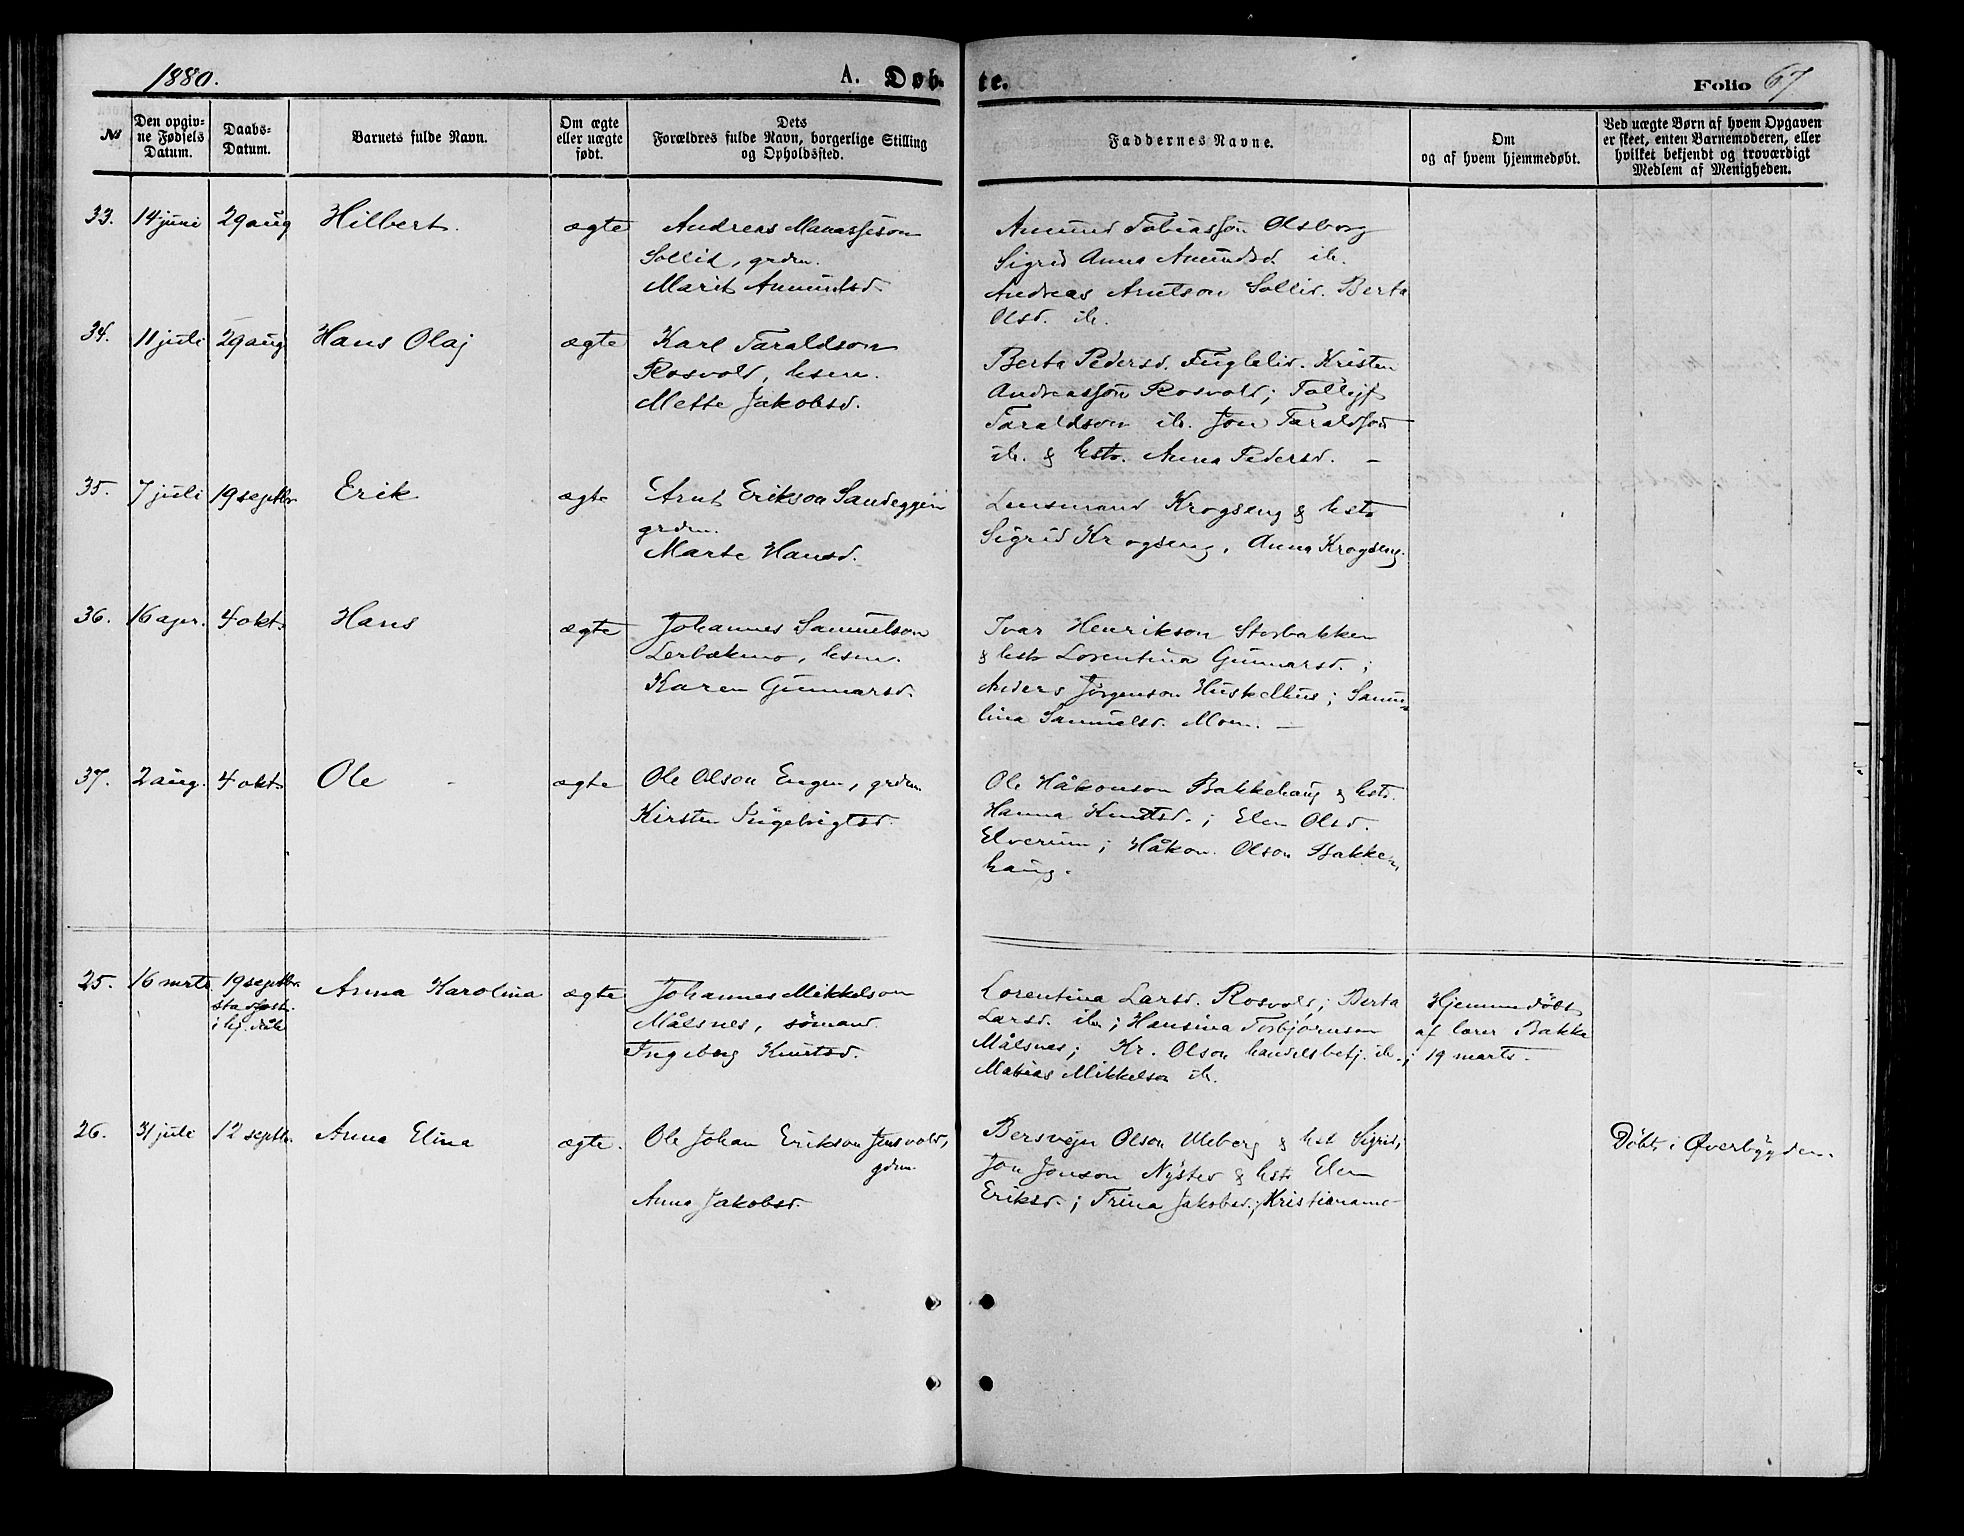 1880.
A. Døb-
te.
Folio 67
№
Den opgiv-
ne Fødsels
Datum.
Daabs-
Datum.
Barnets fulde Navn.
Om ægte
eller uægte
født.
Dets
Forældres fulde Navn, borgerlige Stilling
og Opholdssted.
Faddernes Navne.
Om
og af hvem hjemmedøbt.
Ved uægte Børn af hvem Opgaven
er skeet, enten Barnemoderen, eller
hvilket bekjendt og troværdigt
Medlem af Menigheden.
33. 14 juni 29 aug Hilbert. ægte Andreas Manasseson
Sollid, grdm.
Marit Amundsd.
Amund Tobiassøn Olsborg
Sigrid Anna Amundsd. ib.
Andreas Arntson Sollid. Berta
Olsd. ib.
34. 11 juli 29 aug Hans Olaj ægte Karl Taraldson
Rosvold, husm.
Mette Jakobsd.
Berta Pedersd. Fuglelid. Kristen
Andreassøn Rosvold; Tollejf
Taraldson ib. Jon Taraldson
ib. & hstr. Anna Pedersd. –
35. 7 juli 19 septbr. Erik ægte Arnt Erikson Sandeggen
grdm.
Marte Hansd.
Lensmand Krogseng & hstr
Sigrid Krogseng, Anna Krogseng.
36. 16 apr. 4 okt. Hans ægte Johannes Samuelson
Lerbækmo, husm.
Karen Gunnarsd.
Ivar Henrikson Storbakken
& hstr Lorentina Gunnarsd.;
Anders Jørgenson ; Samu-
lina Samuelsd. Moen. –
37. 2 aug. 4 okt. Ole ægte Ole Olson Engen, grdm.
Kirsten Ingebrigtsd.
Ole Håkonson Bakkehaug & hstr.
Hanna Knutsd.; Elen Olsd.
Elverum; Håkon Olson Bakke-
haug.
25. 16 mrts 19 septbr. Anna Karolina ægte Johannes Mikkelson
stadfæst.
i hj. dåb
Målsnes, sømand.
Ingeborg Knutsd.
Lorentina Larsd. Rosvold; Berta
Larsd. ib.; Hansina Torbjørnson
Målsnes; Kr. Olson handelsbetj. ib.;
Matias Mikkelson ib.
Hjemmedøbt
af lærer Bakke
19 marts.
26. 31 juli 12 septbr. Anna Elina ægte. Ole Johan Erikson Jensvold,
gdm.
Anna Jakobsd.
Bersvejn Olson Uleberg & hst Sigrid;
Jon Jonson Nysted & hstr Elen
Eriksd.; Trina Jakobsd.; Kristianame
Døbt i Øverbygden.